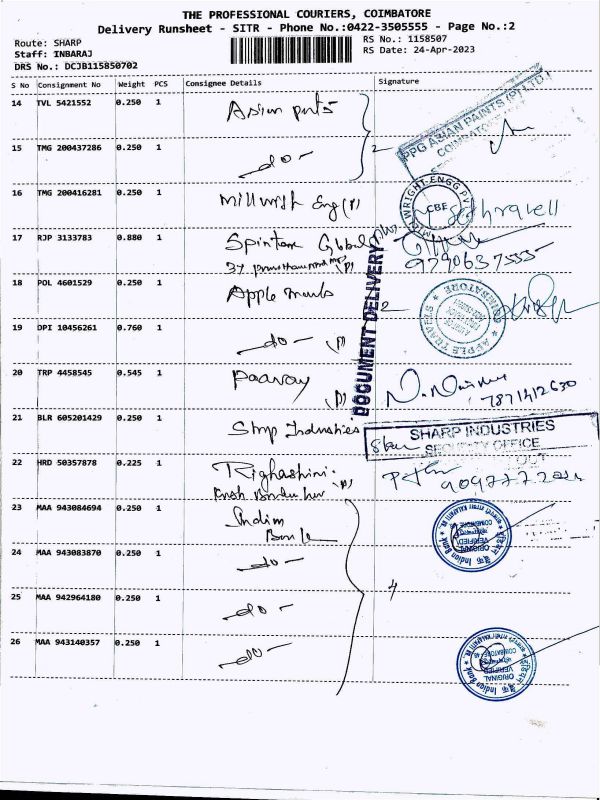 THE PROFESSIONAL COURIERS, COIMBATORE
Delivery Runsheet - SITR - Phone No.:0422-3505555 - Page No.:2
Route: SHARP
Staff: INBARAJ
DRS No.: DCJB115850702
RS No.: 1158507
RS Date: 24-Apr-2023
S No Consignment No Weight PCS Consignee Details Signature
14 TVL 5421552 0.250 1 Asian
PPG ASIAN PAINTS (P) LTD.
COIMBATORE
15 TMG 200437286 0.250 1 -do- 2
16 TMG 200416281 0.250 1 Millwrith Eng (P)
CBE
17 RJP 3133783 0.880 1 Spintom Global
9790637555
18 POL 4601529 0.250 1 Apple
2
APPLE TRAVELS COIMBATORE
DOCUMENT DELIVERY
19 DPI 10456261 0.760 1 -do- (P)
20 TRP 4458545 0.545 1 Paavay (P)
7871412630
21 BLR 605201429 0.250 1 Shrp Industries
SHARP INDUSTRIES
SECURITY OFFICE
OUT
22 HRD 50357878 0.225 1
23 MAA 943084694 0.250 1 Indian
Bank
24 MAA 943083870 0.250 1 -do-
ORIGINAL VERIFIED Indian Bank
25 MAA 942964180 0.250 1 -do- 4
26 MAA 943140357 0.250 1 -do-
ORIGINAL VERIFIED Indian Bank